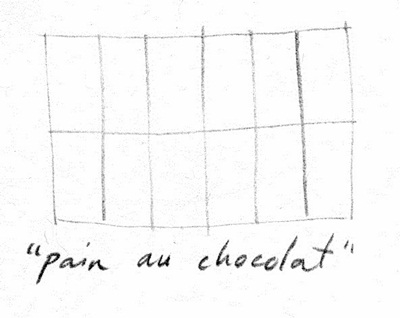 "pain au chocolat"